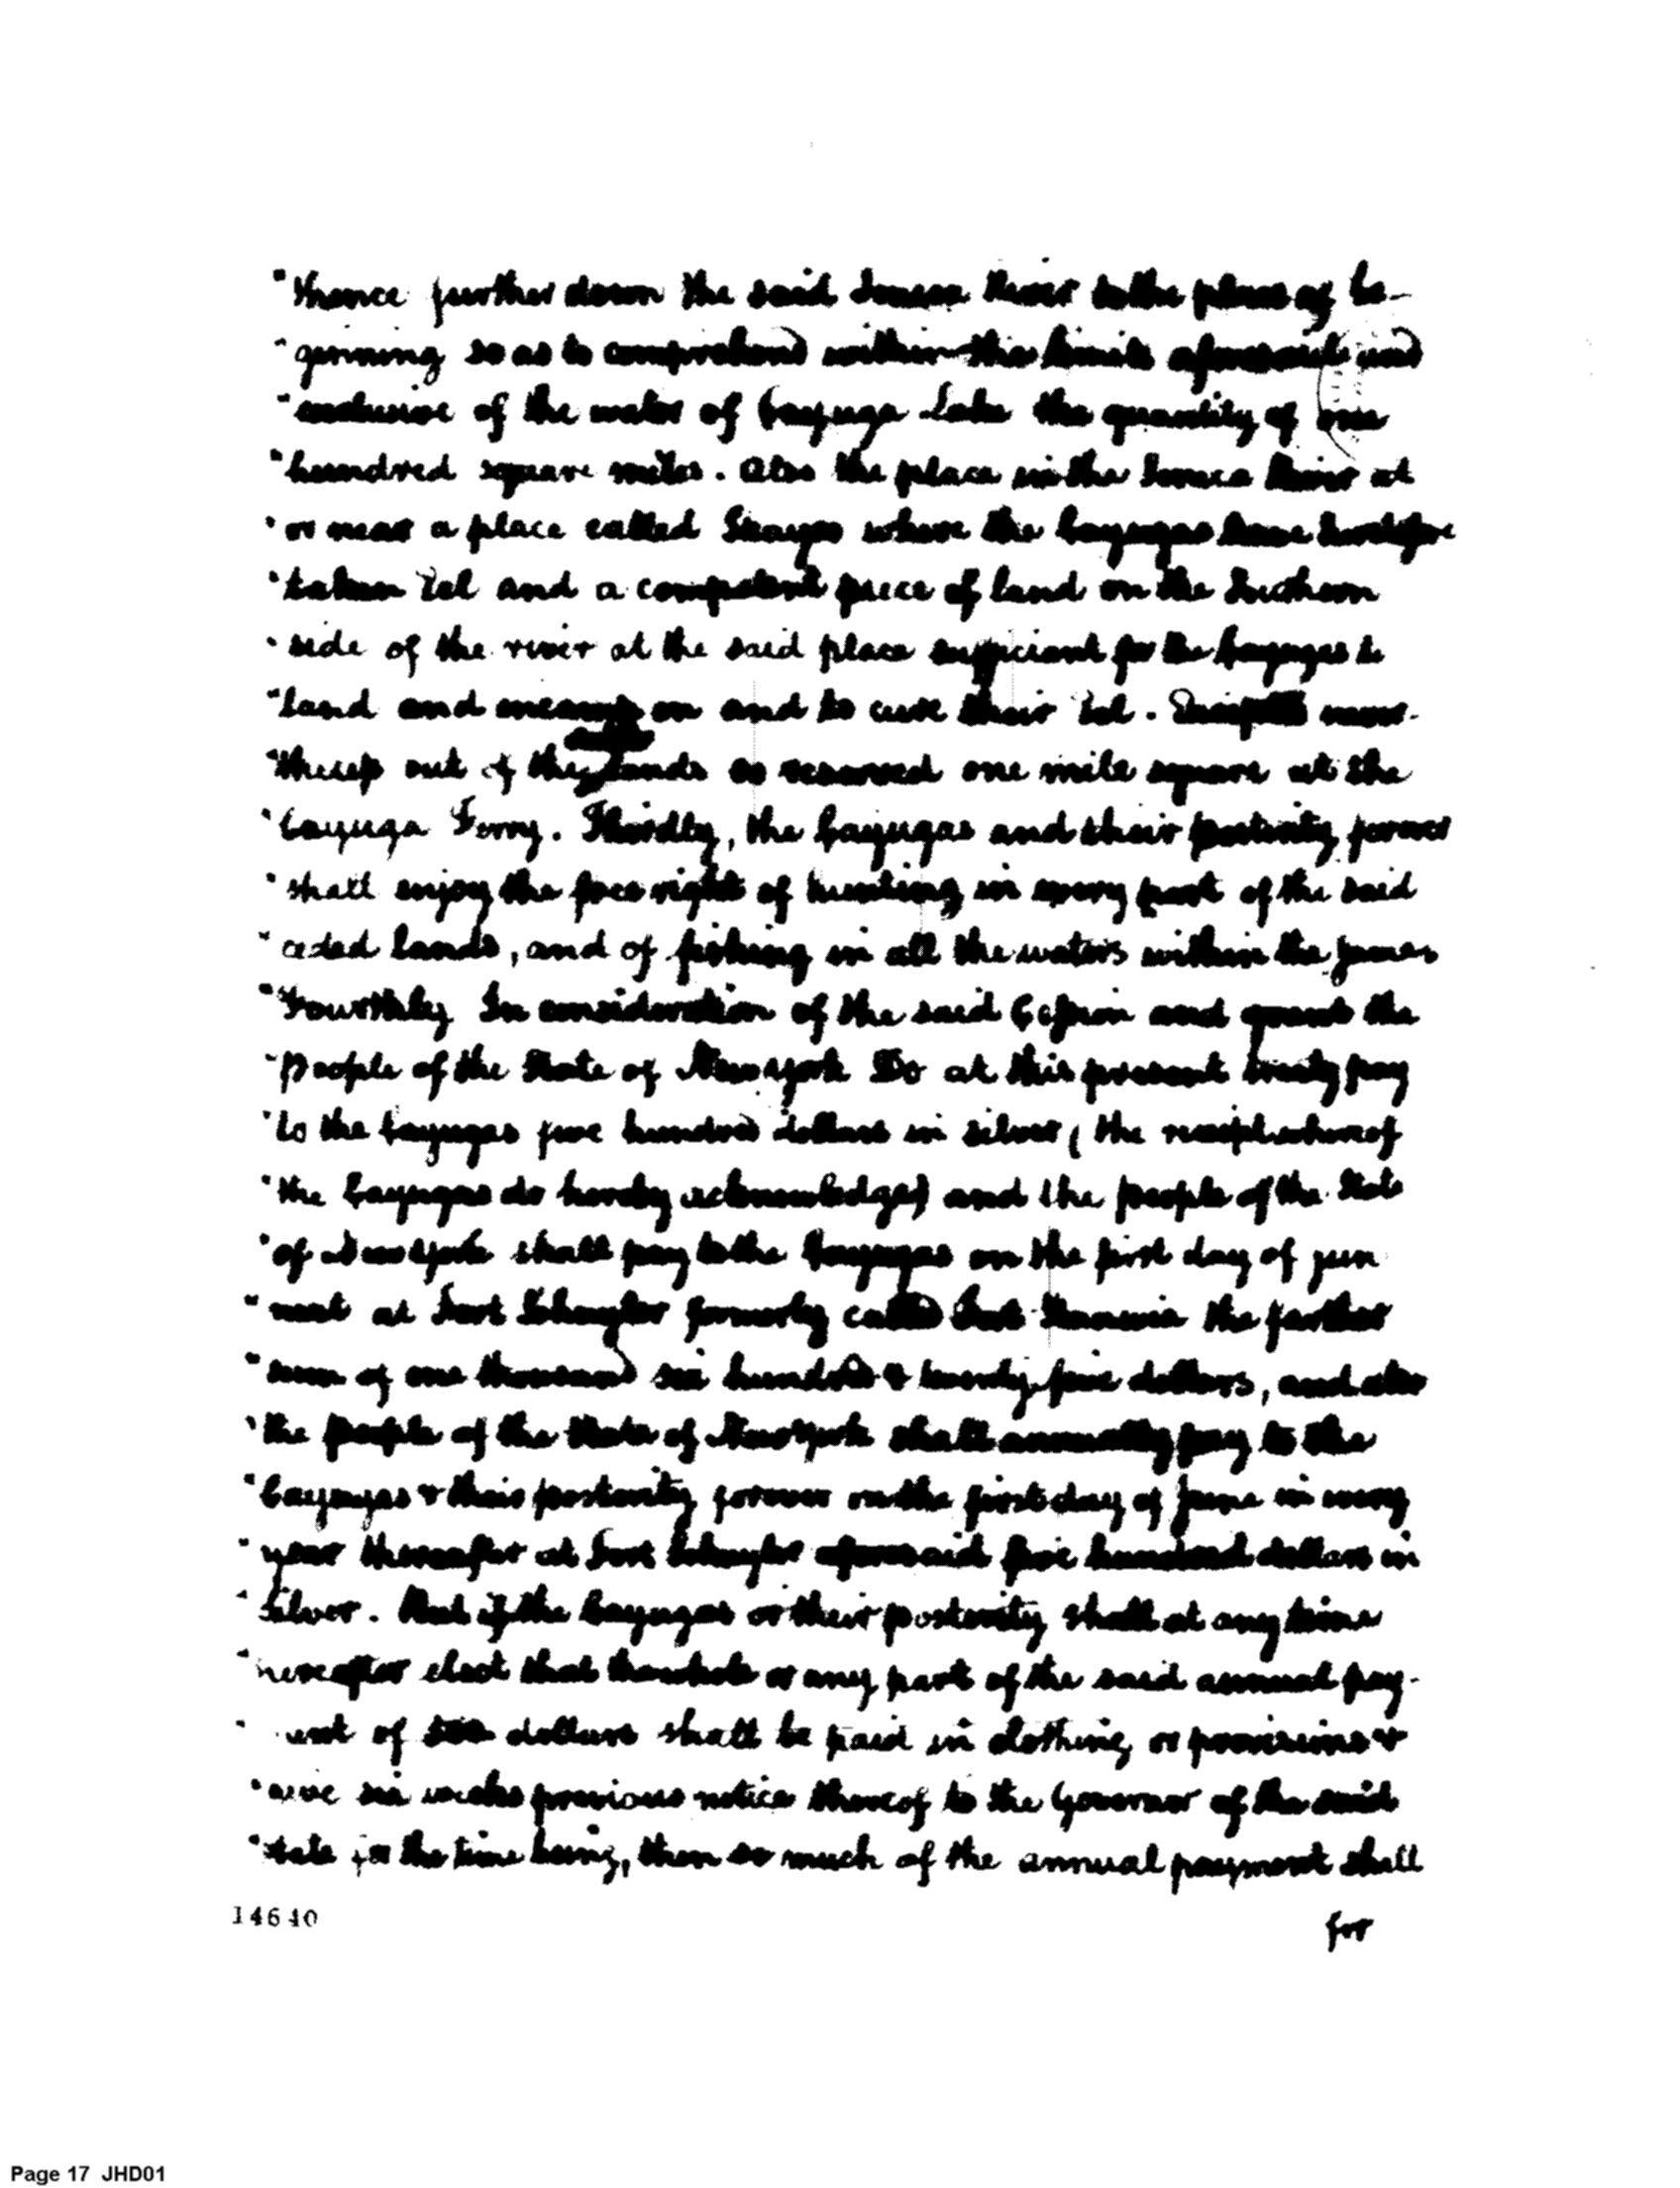 "thence further down the said Seneca River to the place of be-
"ginning so as to comprehend within the limits aforesaid and
"exclusive of the water of Cayuga Lake the quantity of one
"hundred square miles. Also the place in the Seneca River at
"or near a place called Skayes where the Cayugas have heretofore
"taken Eel and a competent piece of land on the Southern
"side of the river at the said place sufficient for the Cayugas to
"land and encamp on and to cure their Eel. Except never-
"theless out of the lands so reserved one mile square at the
"Cayuga Ferry. Thirdly, the Cayugas and their posterity forever
"shall enjoy the free right of hunting in every part of the said
"ceded lands, and of fishing in all the waters within the same
"Fourthly In consideration of the said Cession and grant the
"People of the State of New York Do at this present treaty pay
"to the Cayugas five hundred dollars in silver, (the receipt whereof
"the Cayugas do hereby acknowledge) and the people of the State
"of New York shall pay to the Cayugas on the first day of June
"next at Fort Schuyler formerly called Fort Stanwix the farther
"sum of one thousand six hundred & twenty five dollars, and also
"the people of the State of New York shall annually pay to the
"Cayugas & their posterity forever on the first day of June in every
"year thereafter at Fort Schuyler aforesaid five hundred dollars in
"Silver. But if the Cayugas or their posterity shall at any time
"hereafter elect that the whole or any part of the said annual pay-
"ment of 500 dollars shall be paid in clothing or provisions &
"give six weeks previous notice thereof to the Governor of the said
"state for the time being, then so much of the annual payment shall
14640
for
Page 17 JHD01